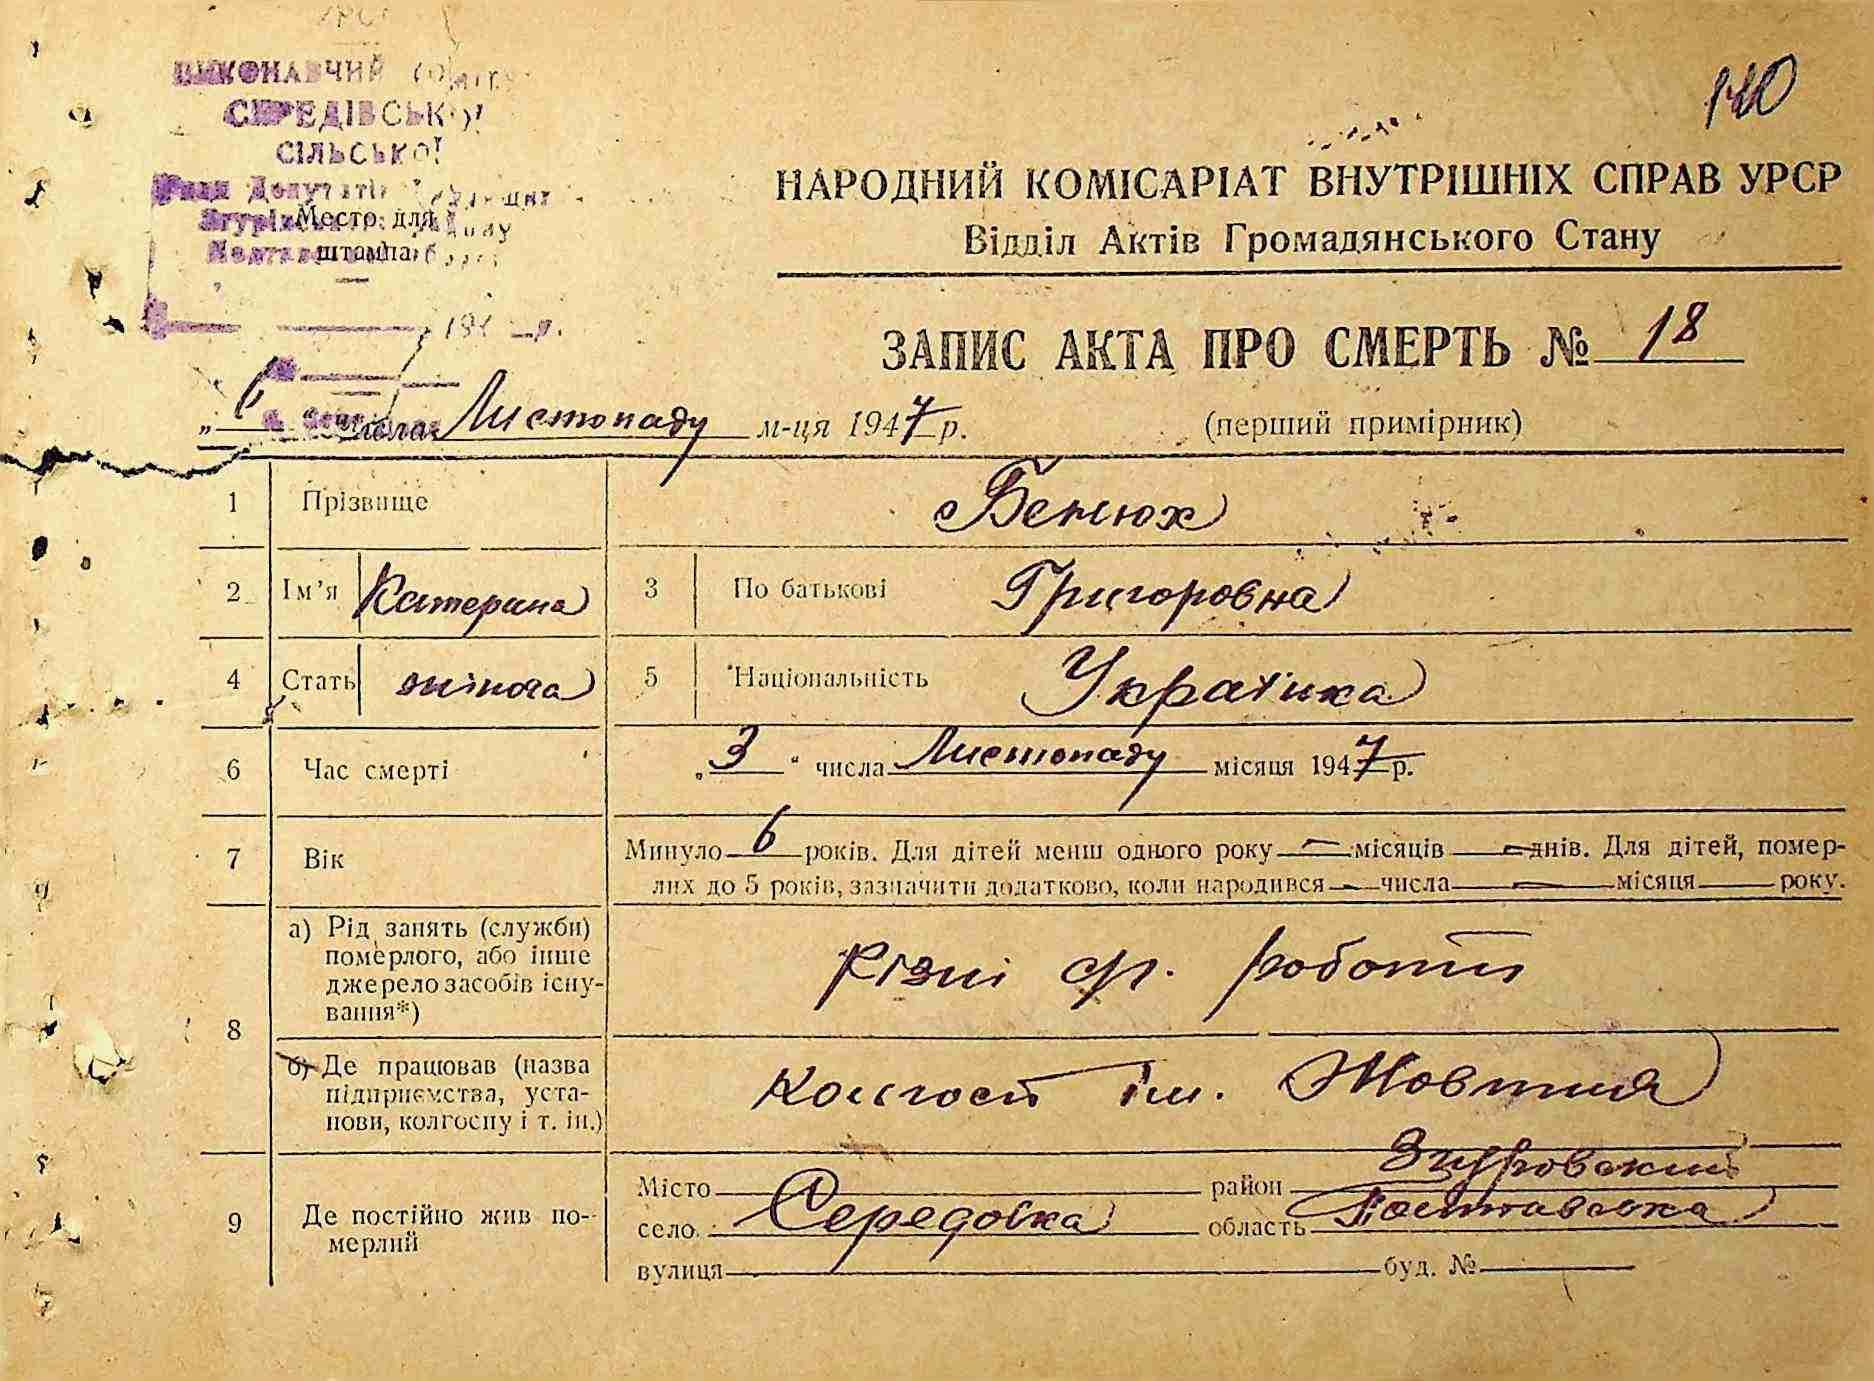 140
ВИКОНАВЧИЙ
СЕРЕДІВСЬКОЇ
СІЛЬСЬКОЇ
Ради Депутатів
Место для
штампа
194 р.
НАРОДНИЙ КОМІСАРІАТ ВНУТРІШНІХ СПРАВ УРСР
Відділ Актів Громадянського Стану
ЗАПИС АКТА ПРО СМЕРТЬ № 18
„6“ числа Листопаду м-ця 1947 р.
(перший примірник)
1 Прізвище Бенюх
2 Ім'я Катерина 3 По батькові Григоровна
4 Стать жіноча 5 Національність Українка
6 Час смерті „3“ числа Листопаду місяця 1947 р.
7 Вік Минуло 6 років. Для дітей менш одного року — місяців — днів. Для дітей, помер-
лих до 5 років, зазначити додатково, коли народився — числа — місяця року.
8 а) Рід занять (служби)
померлого, або інше
джерело засобів існу-
вання*)
Різні ср. роботи
б) Де працював (назва
підприємства, уста-
нови, колгоспу і т. ін.)
колгосп ім. Жовтня
9 Де постійно жив по-
мерлий
Місто район Згуровский
село Середовка область Полтавська
вулиця буд. №